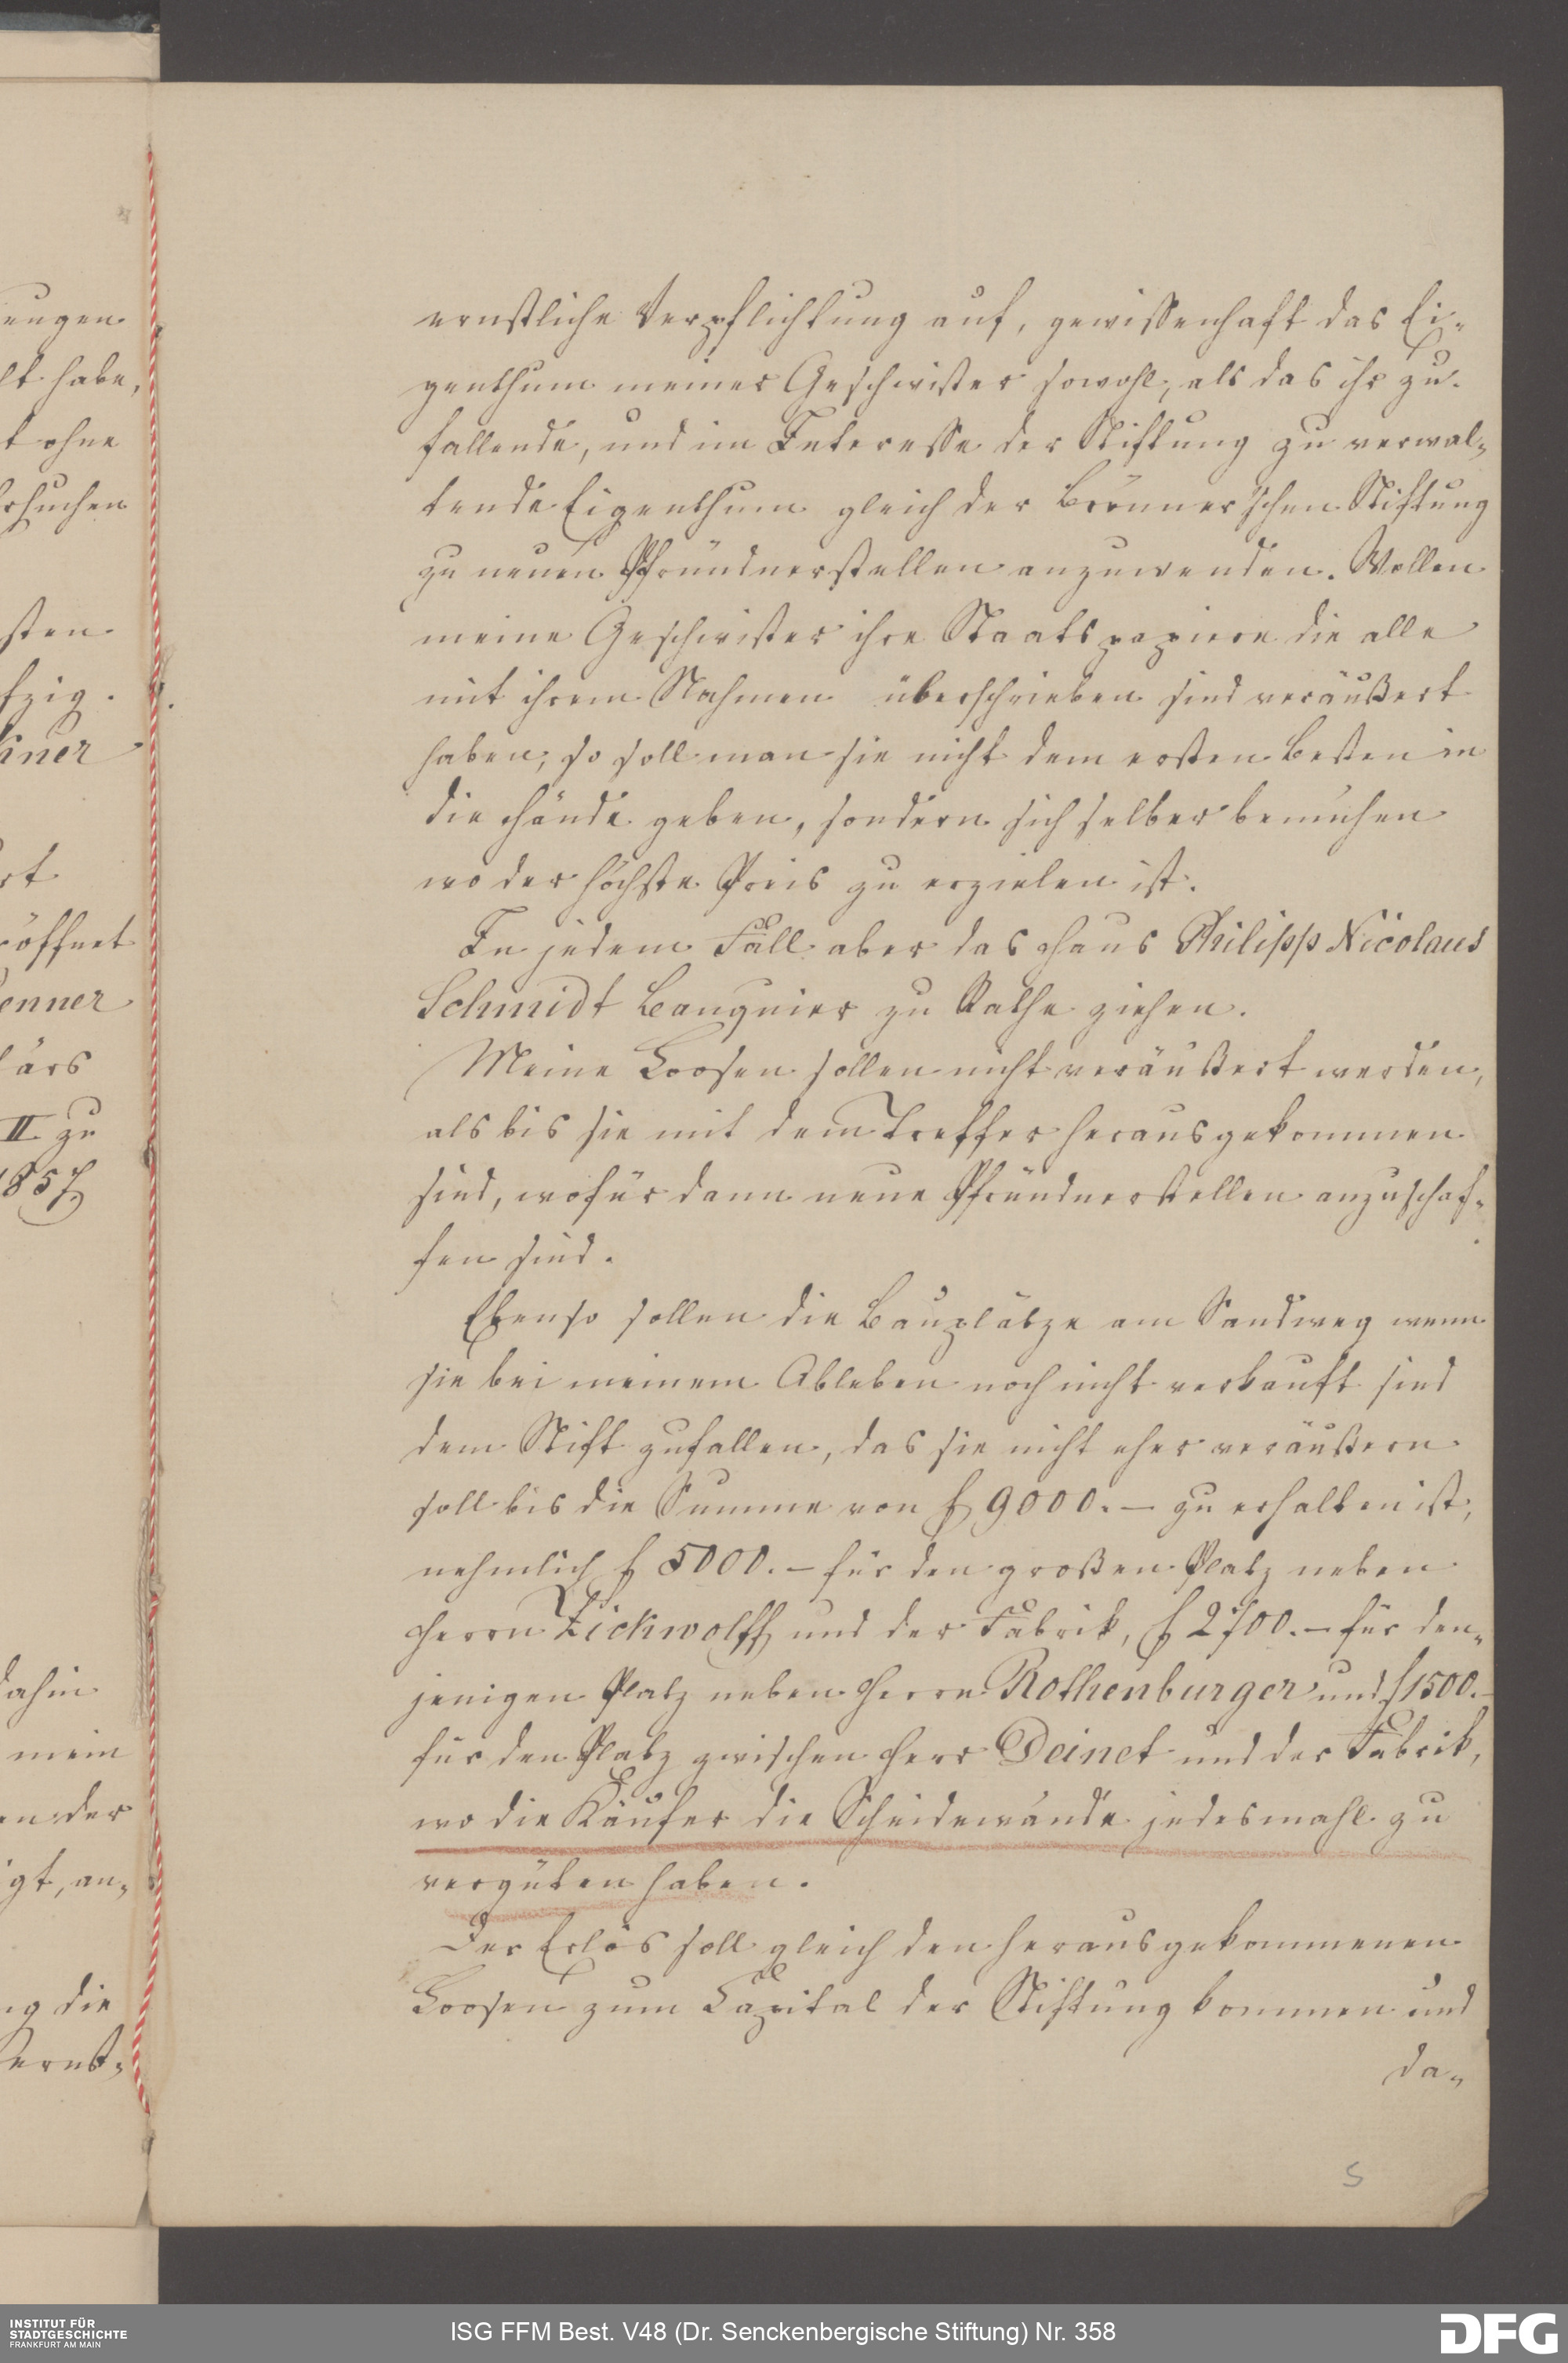 eugen
lt habe,
t ohne
rsuchen
sten
fzig.
kner
rt
röffnet
enner
lärs
II zu
1857
dahin
mein
en der
igt, an-
ng die
ernst-
ernstliche Verpflichtung auf, gewissenhaft das Ei-
genthum meiner Geschwister sowohl, als das ihr zu-
fallende, und im Interesse der Stiftung zu verwal-
tende Eigenthum gleich der Brönner'schen Stiftung
zu neuen Pfründnerstellen anzuwenden. Wollen
meine Geschwister ihre Staatspapiere die alle
mit ihrem Nahmen überschrieben sind veräußert
haben, so soll man sie nicht dem ersten Besten in
die Hände geben, sondern sich selber bemühen
wo der höchste Preis zu erzielen ist.
In jedem Fall aber das Haus Philipp Nicolaus
Schmidt Banquier zu Rathe ziehen.
Meine Loosen sollen nicht veräußert werden,
als bis sie mit dem Treffer herausgekommen
sind, wofür dann neue Pfründnerstellen anzuschaf-
fen sind.
Ebenso sollen die Bauplätze am Sandweg wenn
sie bei meinem Ableben noch nicht verkauft sind
dem Stift zufallen, das sie nicht eher veräußern
soll bis die Summe von f 9000.– zu erhalten ist,
nehmlich f 5000.– für den großen Platz neben
Herrn Zickwolff und der Fabrik, f 2700.– für den-
jenigen Platz neben Herrn Rothenburger und f 1500.–
für den Platz zwischen Herr Deinet und der Fabrik,
wo die Käufer die Scheidewände jedesmahl zu
vergüten haben.
Der Erlös soll gleich den herausgekommenen
Loosen zum Capital der Stiftung kommen und
da-
5
INSTITUT FÜR
STADTGESCHICHTE
FRANKFURT AM MAIN
ISG FFM Best. V48 (Dr. Senckenbergische Stiftung) Nr. 358
DFG